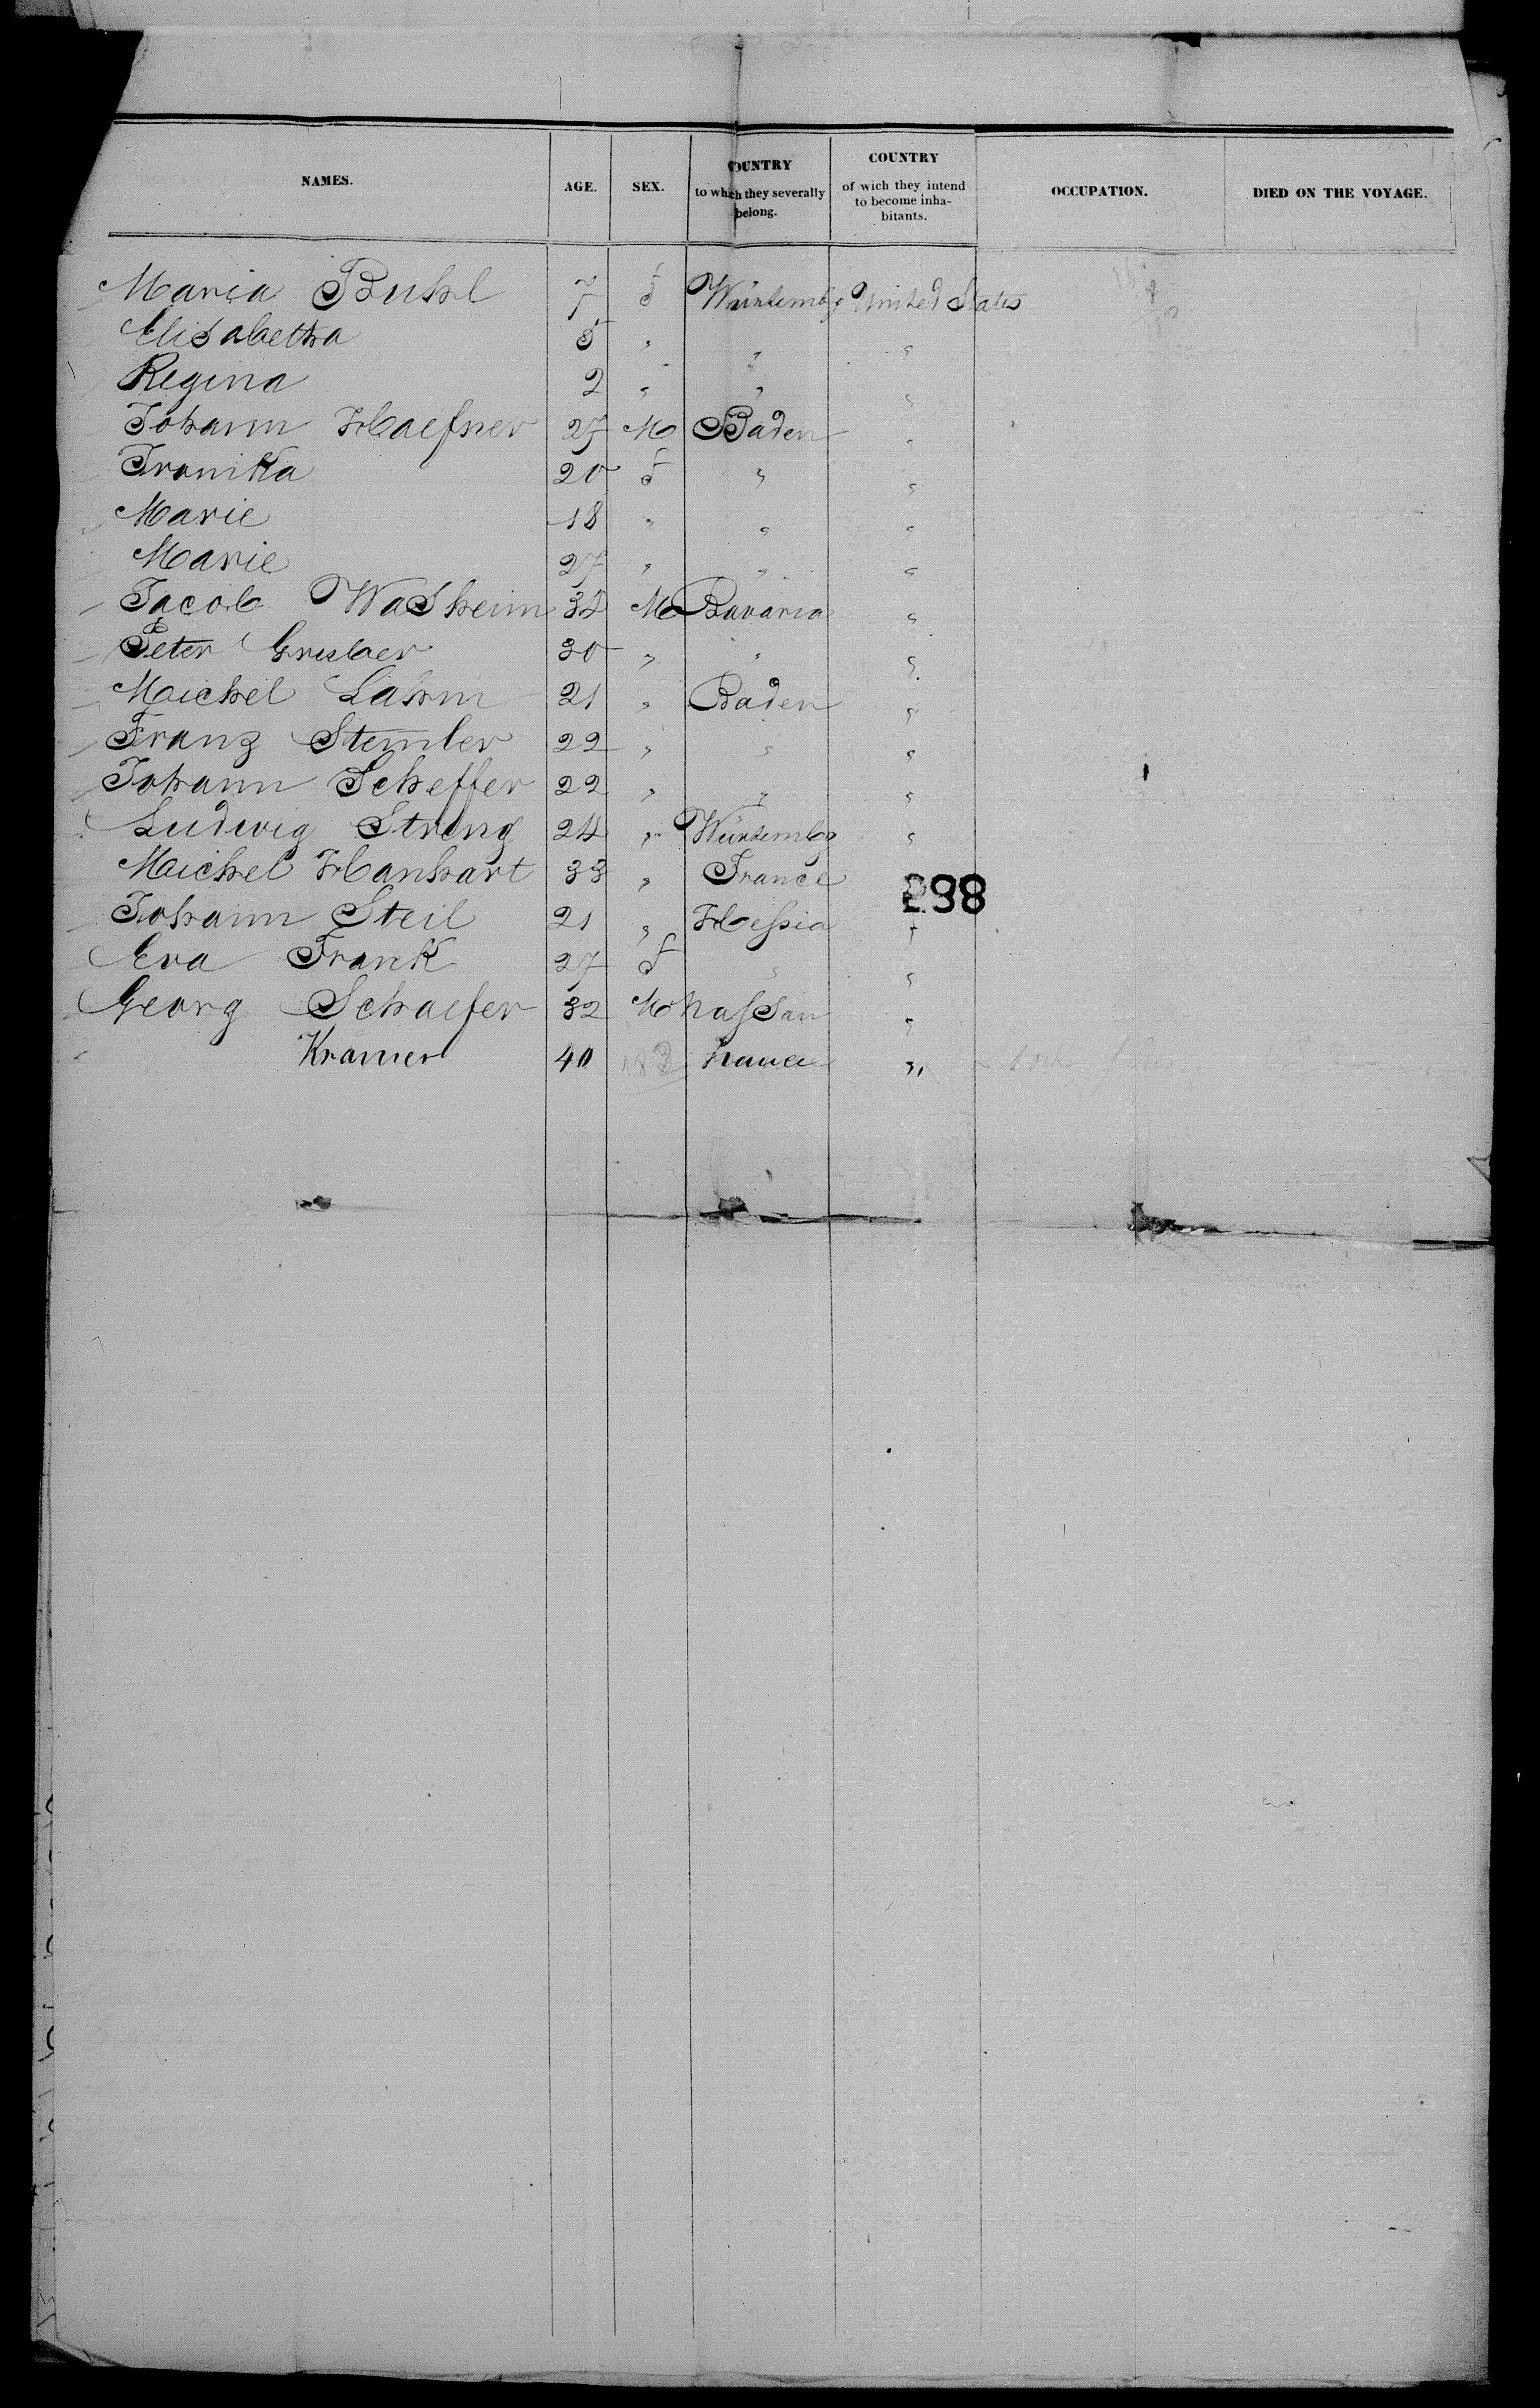 NAMES. AGE. SEX. COUNTRY to which they severally belong. COUNTRY of wich they intend to become inha-bitants. OCCUPATION. DIED ON THE VOYAGE.
Maria Buhl 7 f Würtembg United States
Elisabetha 5 " " "
Regina 2 " " "
Johann Haefner 27 M Baden "
Fronika 20 f " "
Marie 18 " " "
Marie 27 " " "
Jacob Washeim 34 M Bavaria "
Peter Gruber 30 " " "
Michel Lahm 21 " Baden "
Franz Stemler 22 " " "
Johann Scheffer 22 " " "
Ludwig Streng 24 " Würtembg "
Michel Hanhart 33 " France "
298
Johann Steil 21 " Hessia "
Eva Frank 27 f " "
Georg Schaefer 32 M Nassau "
Kramer 40 183 France "